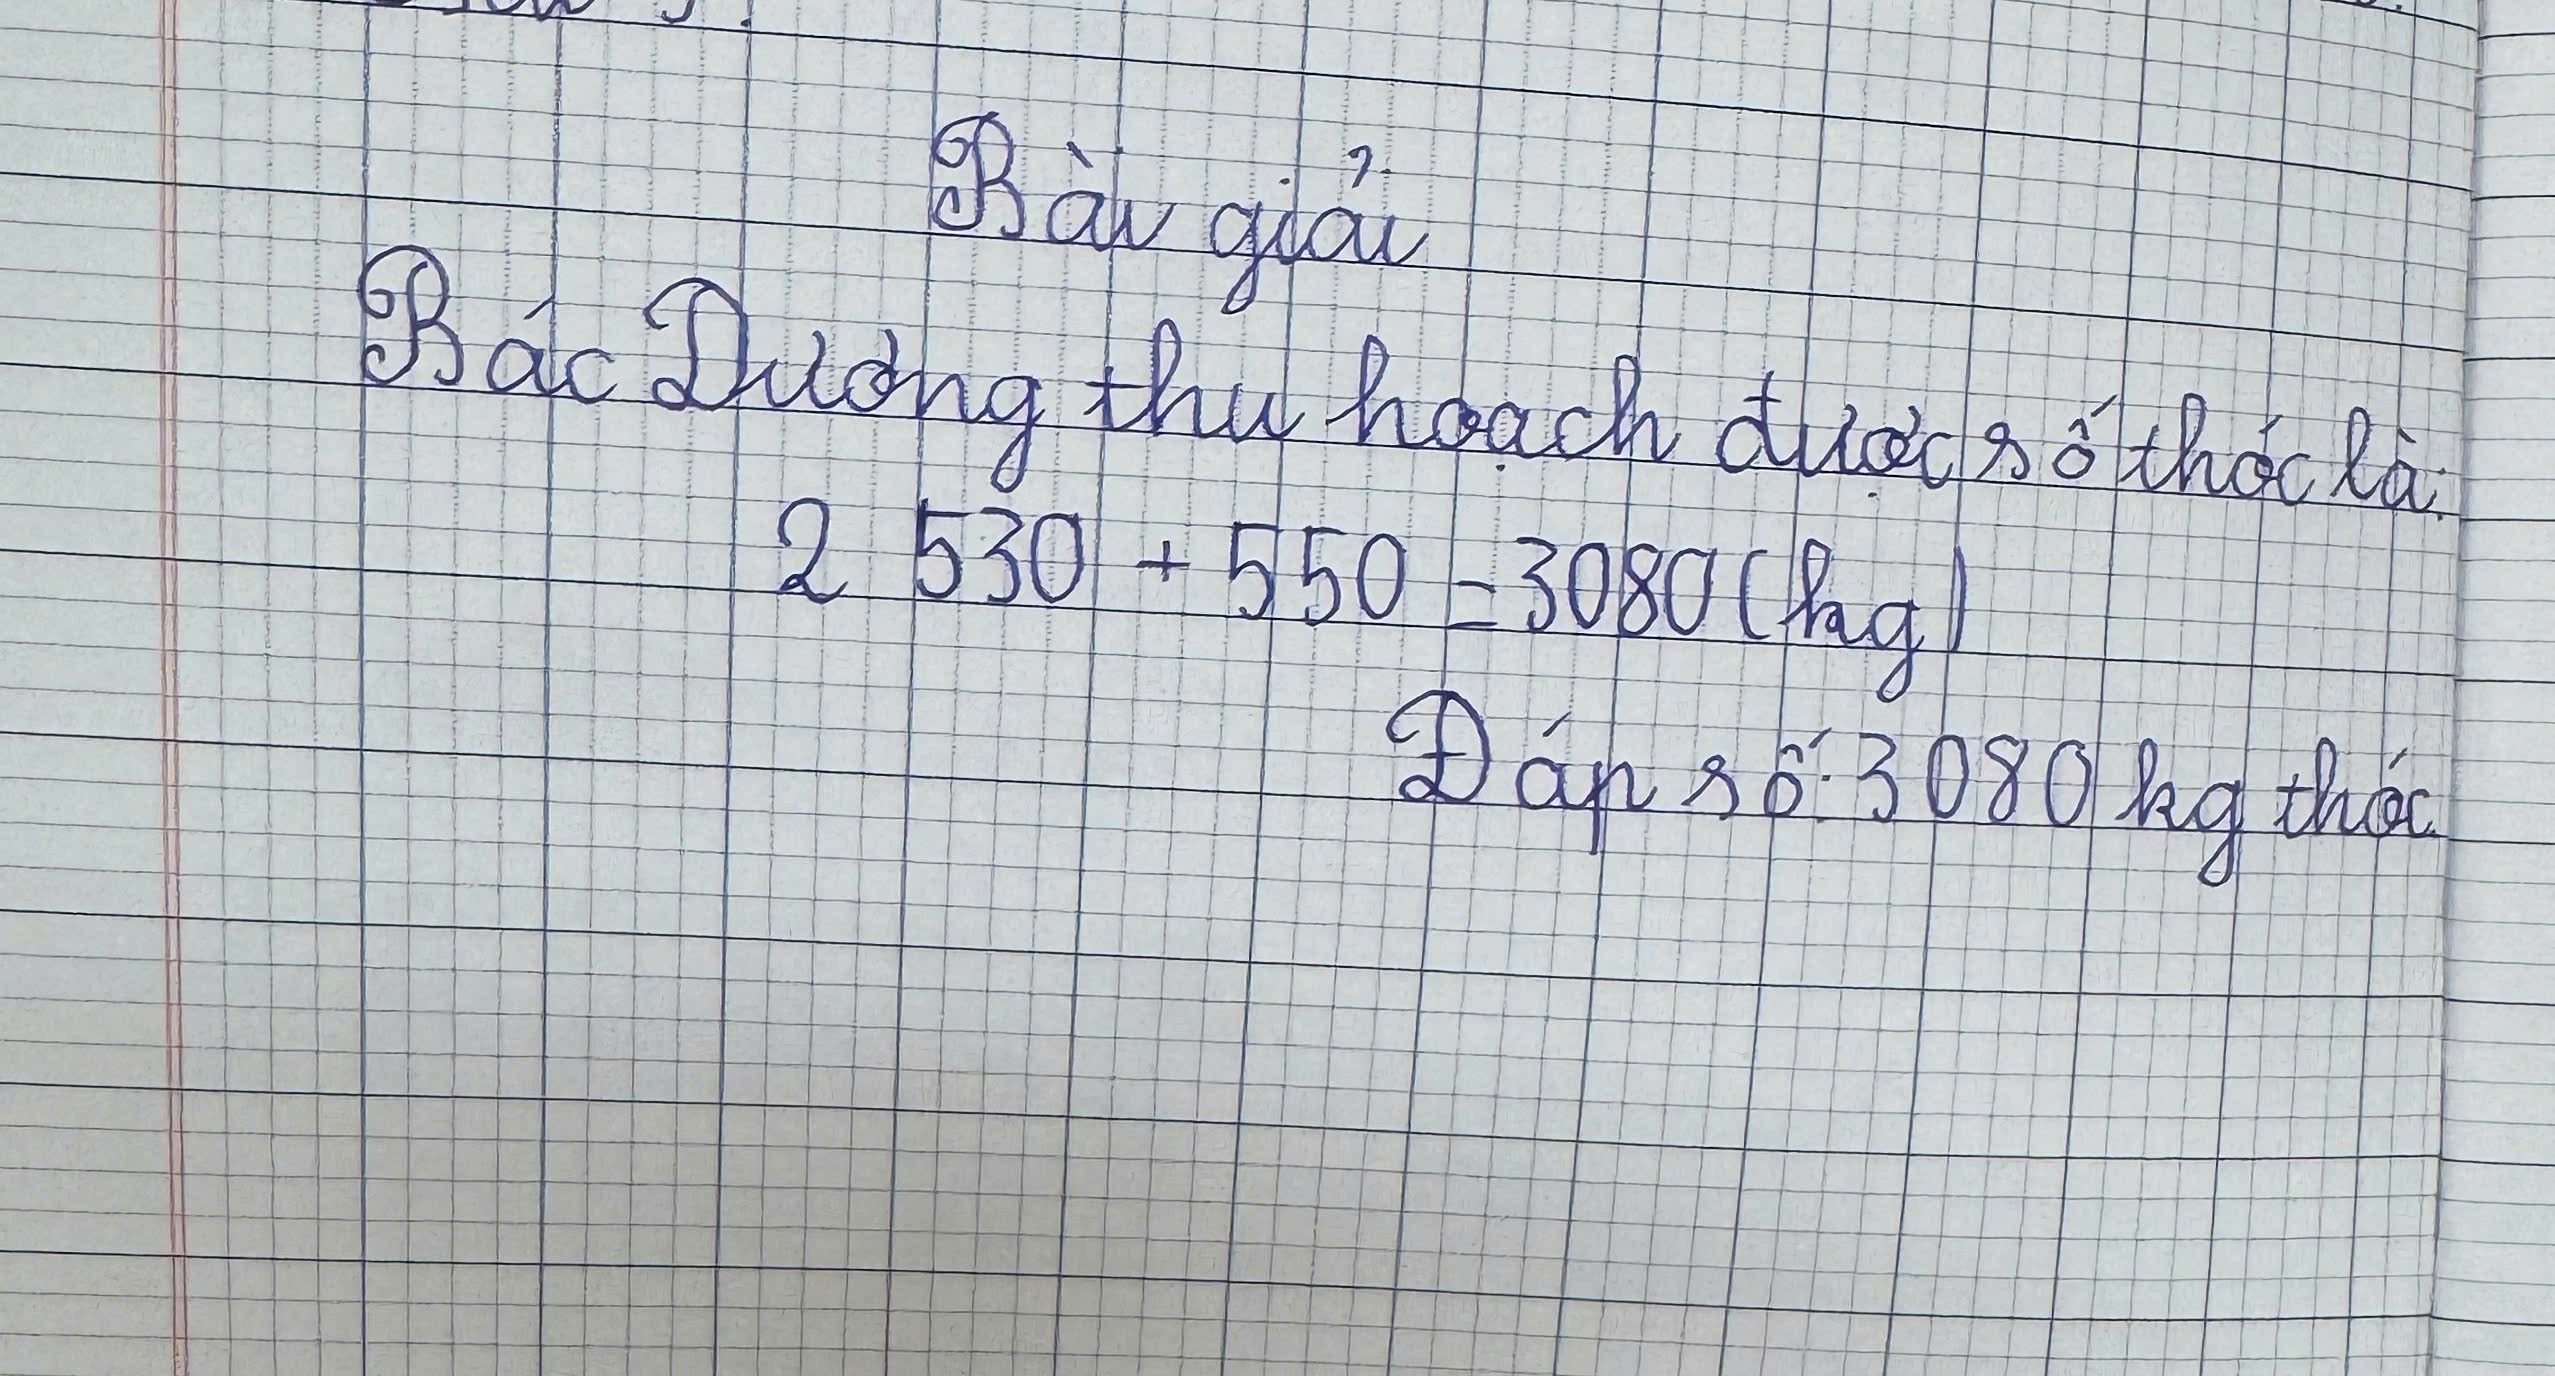 Bài giải
Bác Dương thu hoạch được số thóc là:
2 530 + 550 = 3080 (kg)
Đáp số: 3080 kg thóc